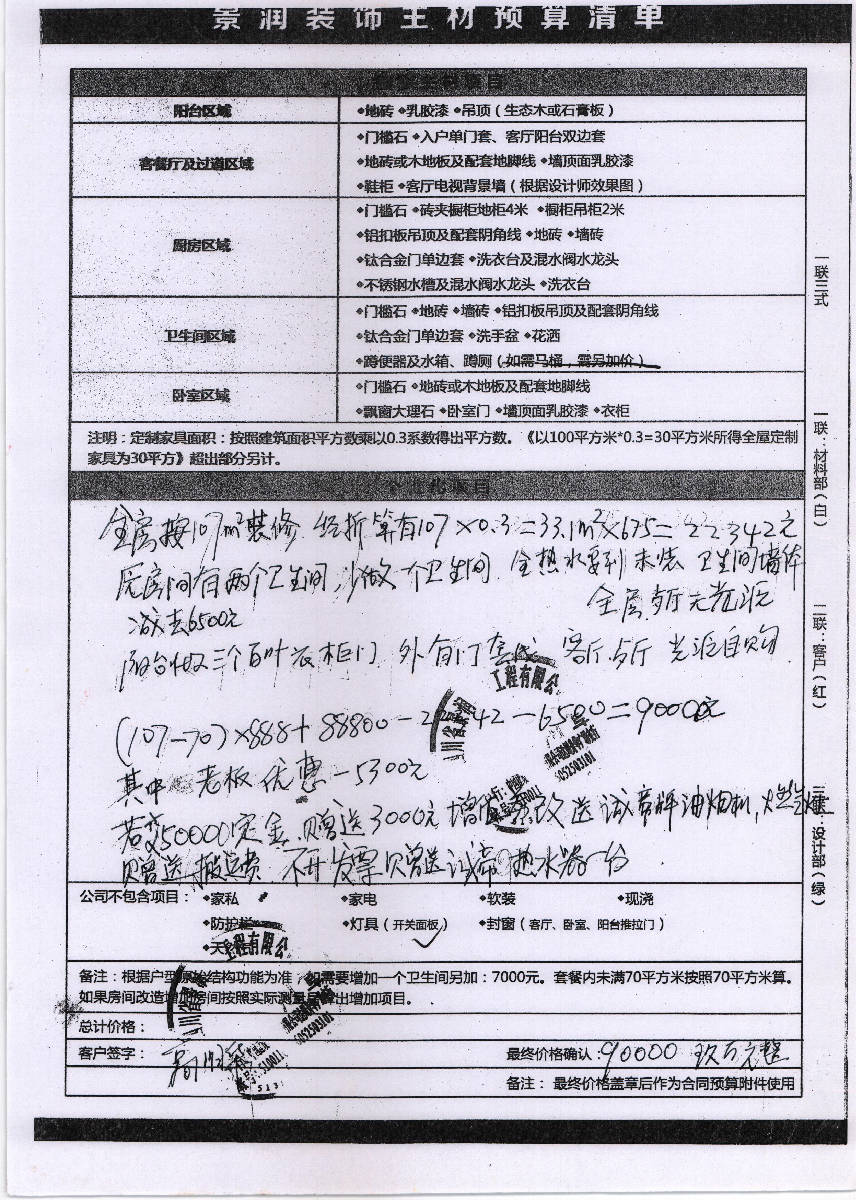 景润装饰主材预算清单
项目
阳台区域 ◆地砖 ◆乳胶漆 ◆吊顶（生态木或石膏板）
客餐厅及过道区域
◆门槛石 ◆入户单门套、客厅阳台双边套
◆地砖或木地板及配套地脚线 ◆墙顶面乳胶漆
◆鞋柜 ◆客厅电视背景墙（根据设计师效果图）
厨房区域
◆门槛石 ◆砖夹橱柜地柜4米 ◆橱柜吊柜2米
◆铝扣板吊顶及配套阴角线 ◆地砖 ◆墙砖
◆钛合金门单边套 ◆洗衣台及混水阀水龙头
◆不锈钢水槽及混水阀水龙头 ◆洗衣台
卫生间区域
◆门槛石 ◆地砖 ◆墙砖 ◆铝扣板吊顶及配套阴角线
◆钛合金门单边套 ◆洗手盆 ◆花洒
◆蹲便器及水箱、蹲厕（如需马桶，需另加价）
卧室区域
◆门槛石 ◆地砖或木地板及配套地脚线
◆飘窗大理石 ◆卧室门 ◆墙顶面乳胶漆 ◆衣柜
注明：定制家具面积：按照建筑面积平方数乘以0.3系数得出平方数。《以100平方米*0.3=30平方米所得全屋定制
家具为30平方》超出部分另计。
个性化项目
全房按107m²装修 经折算有107×0.3=33.1m²×675=22342元
房间有两个卫生间,少做一个卫生间 卫生间墙体
减去6500元
阳台做三个百叶衣柜门 外有门套 客厅 自购
(107-70)×888+88800-22342-6500=90000元
其中 老板优惠-5300元
若交50000定金 赠送3000元增值 送 牌油烟机,燃气灶
赠送搬运费 不开发票赠送 热水器一份
公司不包含项目： ◆家私 ◆家电 ◆软装 ◆现浇
◆防护栏 ◆灯具（开关面板） ◆封窗（客厅、卧室、阳台推拉门）
工程有限公
备注：根据户型原始结构功能为准，如需要增加一个卫生间另加：7000元。套餐内未满70平方米按照70平方米算。
如果房间改造增加房间按照实际测量 出增加项目。
总计价格：
客户签字： 最终价格确认：90000 玖万元整
备注： 最终价格盖章后作为合同预算附件使用
一联三式
一联：材料部（白）
二联：客户（红）
三联：设计部（绿）
工程有限公